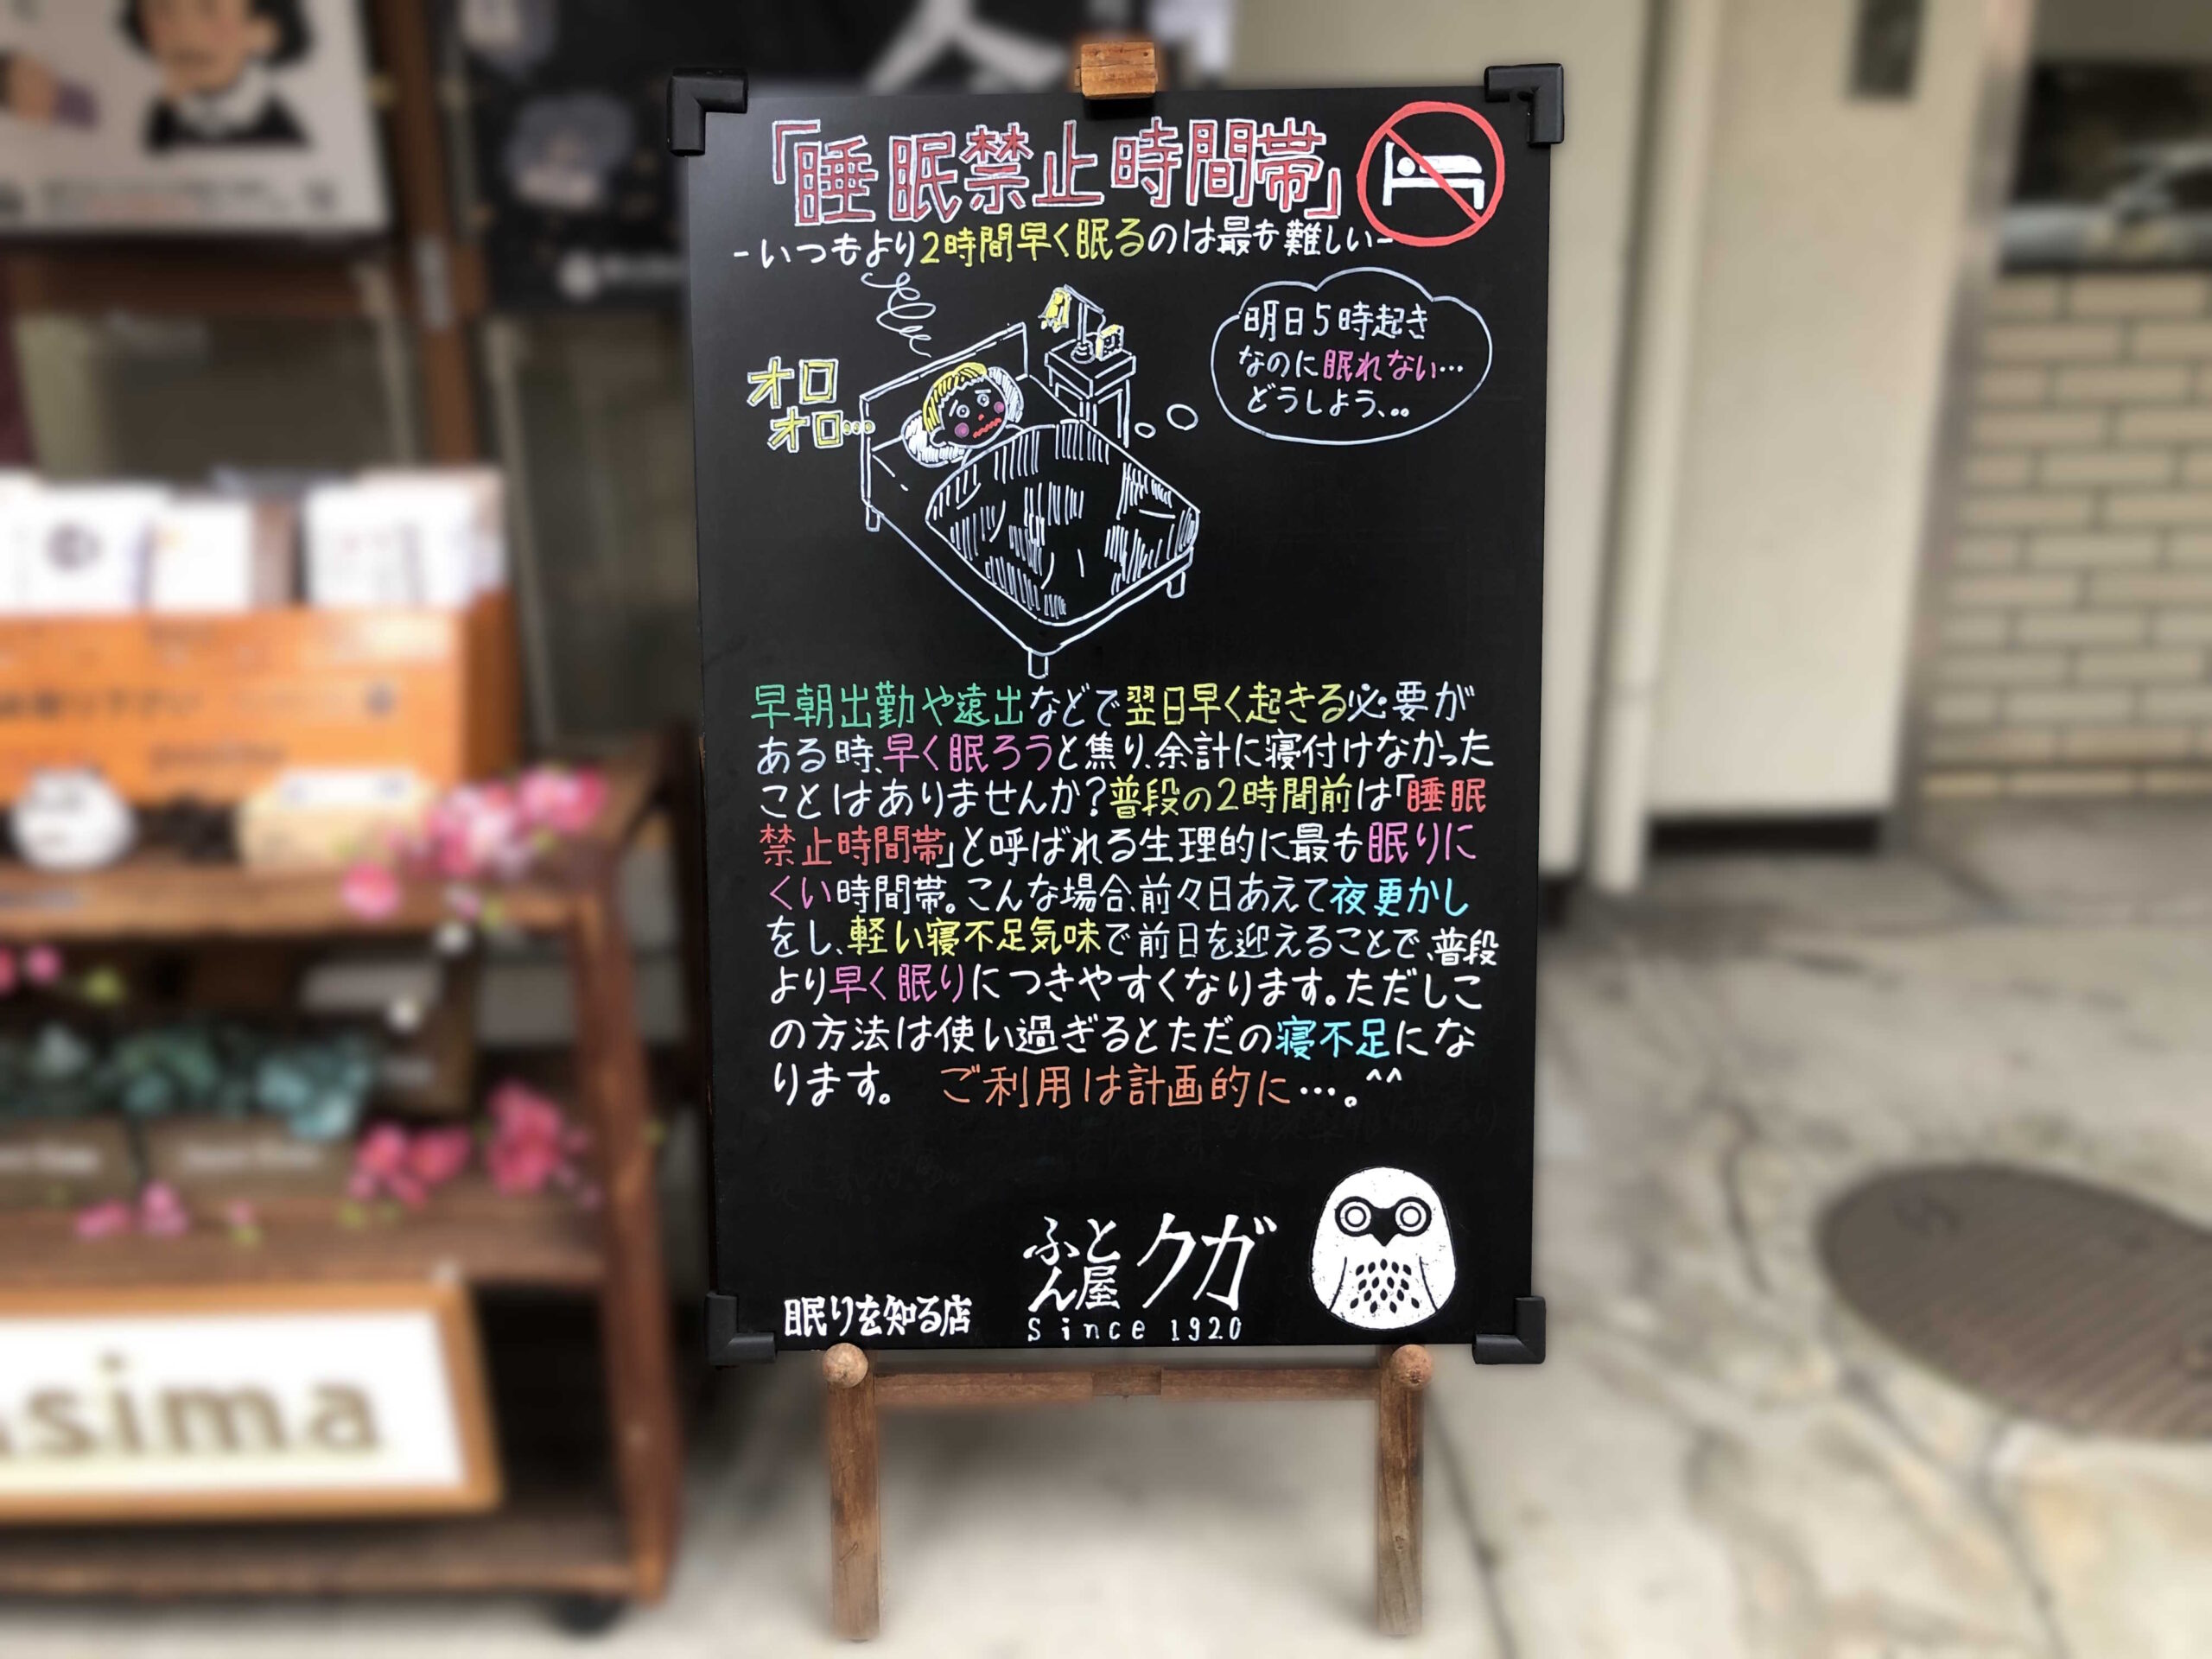 「睡眠禁止時間帯」
-いつもより2時間早く眠るのは最も難しい-
明日5時起き
なのに眠れない…
どうしよう、。。
オロ
オロ…
早朝出勤や遠出などで翌日早く起きる必要が
ある時、早く眠ろうと焦り、余計に寝付けなかった
ことはありませんか?普段の2時間前は「睡眠
禁止時間帯」と呼ばれる生理的に最も眠りに
くい時間帯。こんな場合、前々日あえて夜更かし
をし、軽い寝不足気味で前日を迎えることで、普段
より早く眠りにつきやすくなります。ただしこ
の方法は使い過ぎるとただの寝不足にな
ります。 ご利用は計画的に…。^^
眠りを知る店
ふとん屋クガ
Since 1920
sima